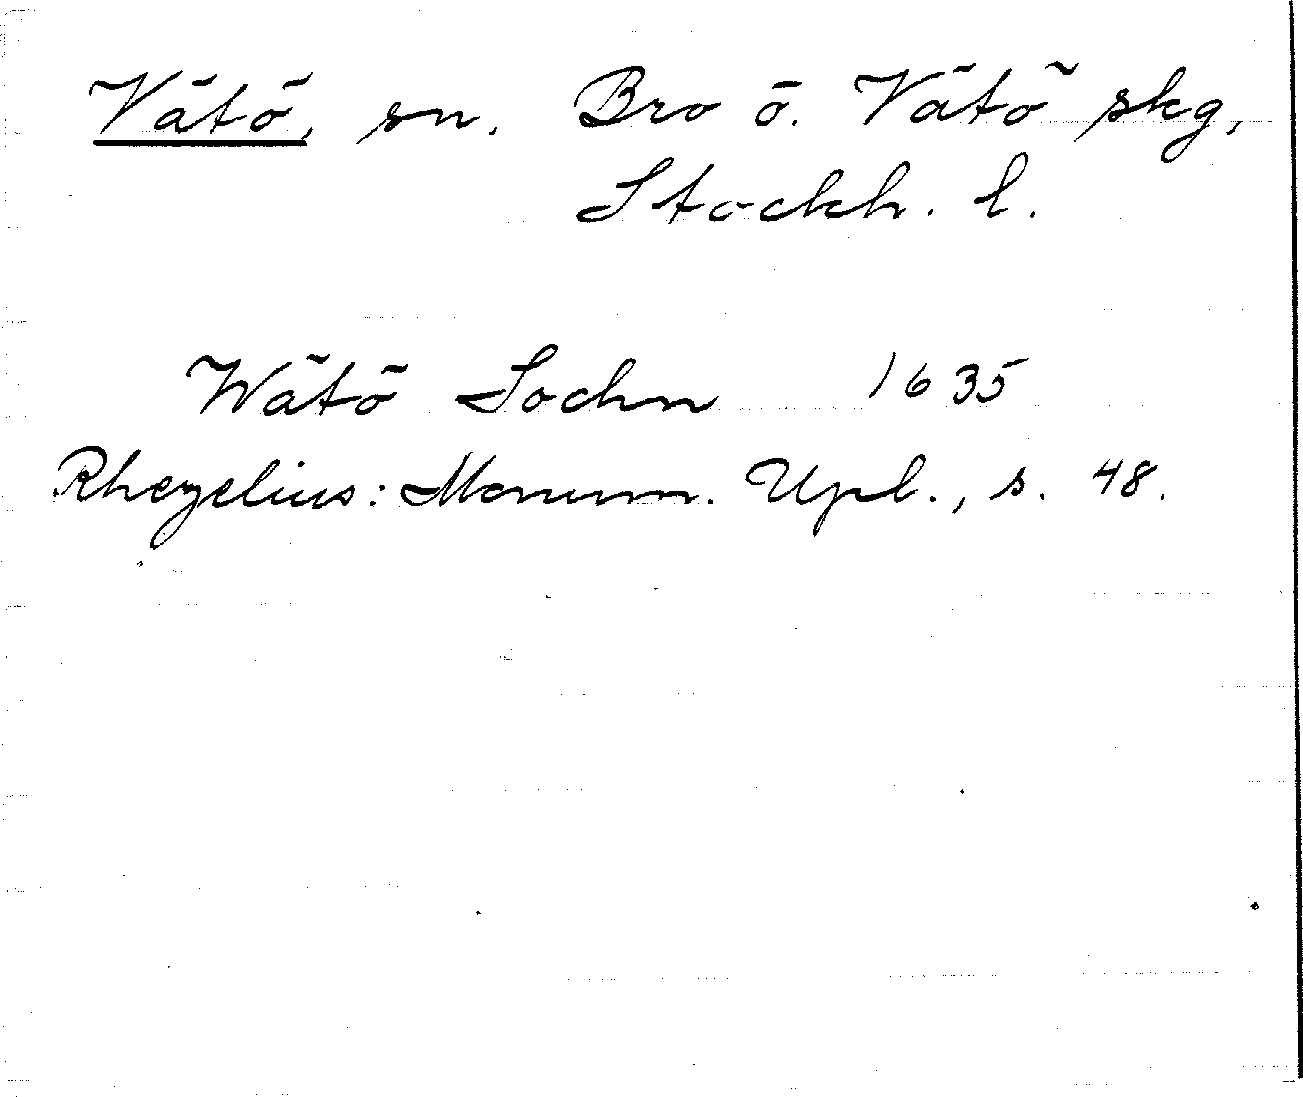 Vätö, sn. Bro o. Vätö skg,
Stockh. l.
Wätö Sochn 1635
Rhezelius: Monum. Upl., s. 48.